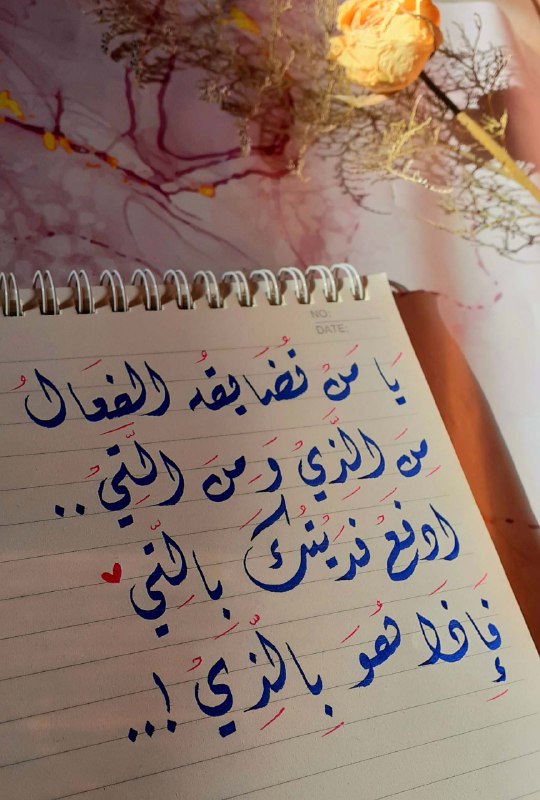 NO:
DATE:
يَا مَنْ تُضَايقُه الفعَالُ
مِنَ الَّذيُ وَمِنَ الَّتِيُ..
ادفَعْ فَدَيْتُكَ بالَّتِي
فَإِذَا هُوَ بِالَّذِيُ!...